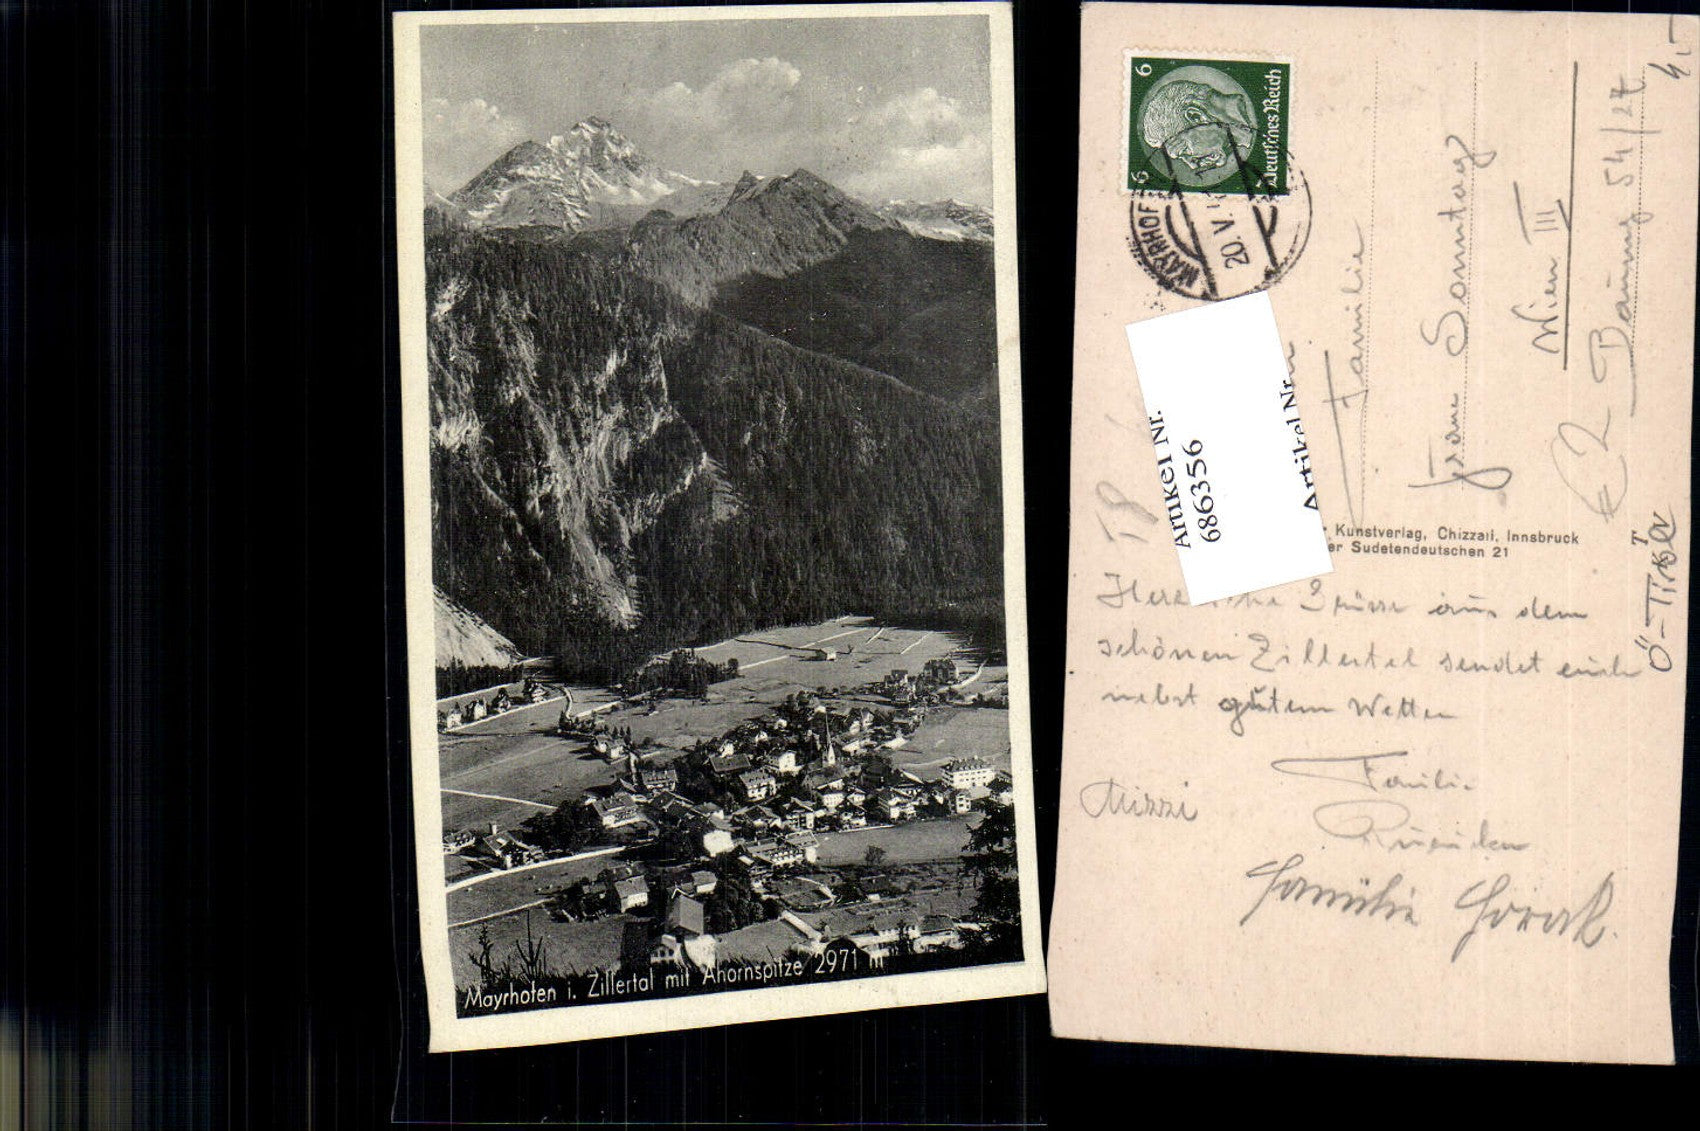 Mayrhofen i. Zillertal mit Ahornspitze 2971 m
6
6
Deutsches Reich
MAYRHOF
20. V.
Artikel Nr.
686356
Artikel Nr.
Familie
Sonntag
Wien III
54/27
€ 2
4,-
Ö-Tirol
T
Kunstverlag, Chizzali, Innsbruck
er Sudetendeutschen 21
Grüsse aus dem
schönen Zillertal sendet euch
nebst gutem Wetter
Familie
Mizzi
Familie